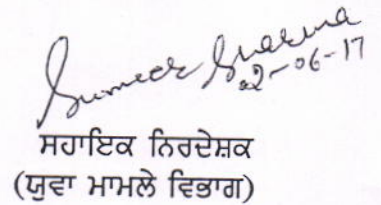 Sumeer Sharma
22-06-17
ਸਹਾਇਕ ਨਿਰਦੇਸ਼ਕ
(ਯੁਵਾ ਮਾਮਲੇ ਵਿਭਾਗ)